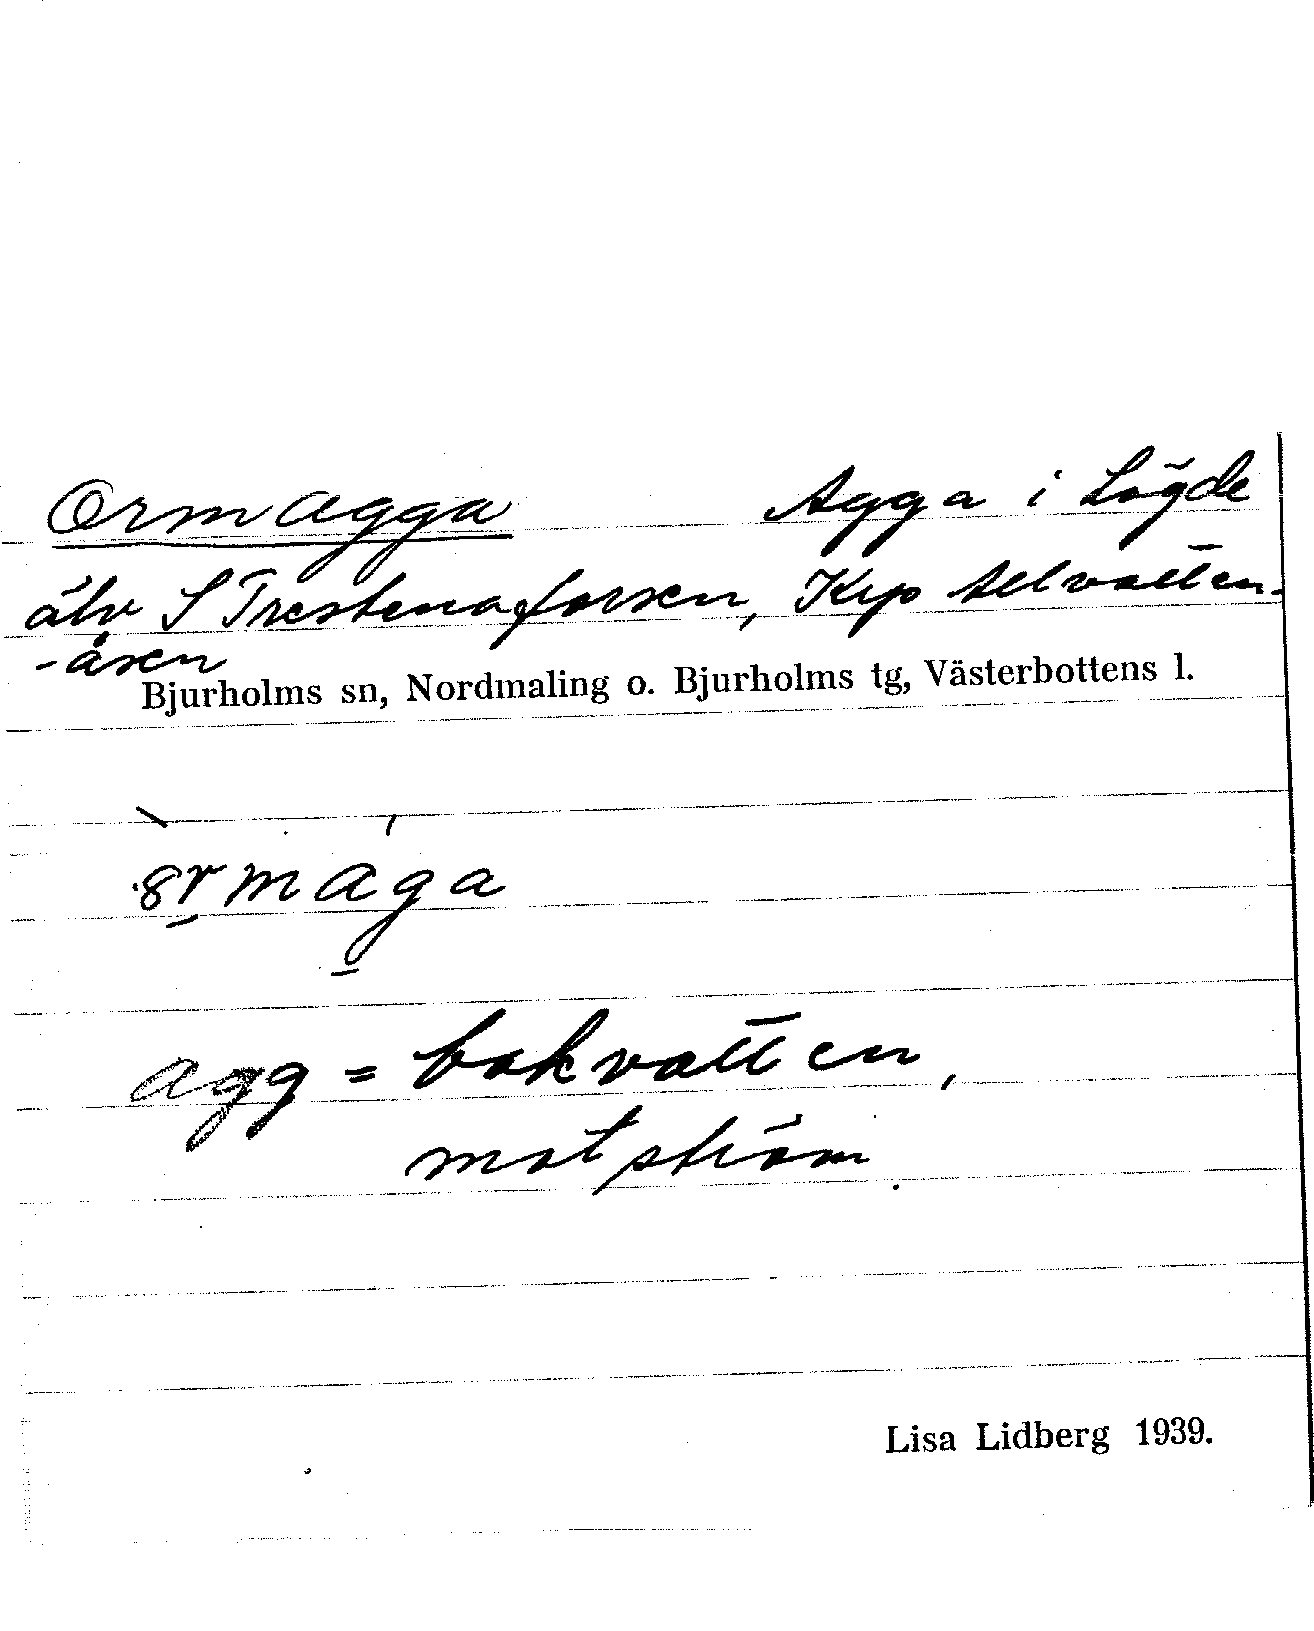 Ormagga Agga i Lögde
älv S Trestenaforsen, Krp Selvatten-
-åsen
Bjurholms sn, Nordmaling o. Bjurholms tg, Västerbottens l.
agg = bakvatten,
motström
Lisa Lidberg 1939.